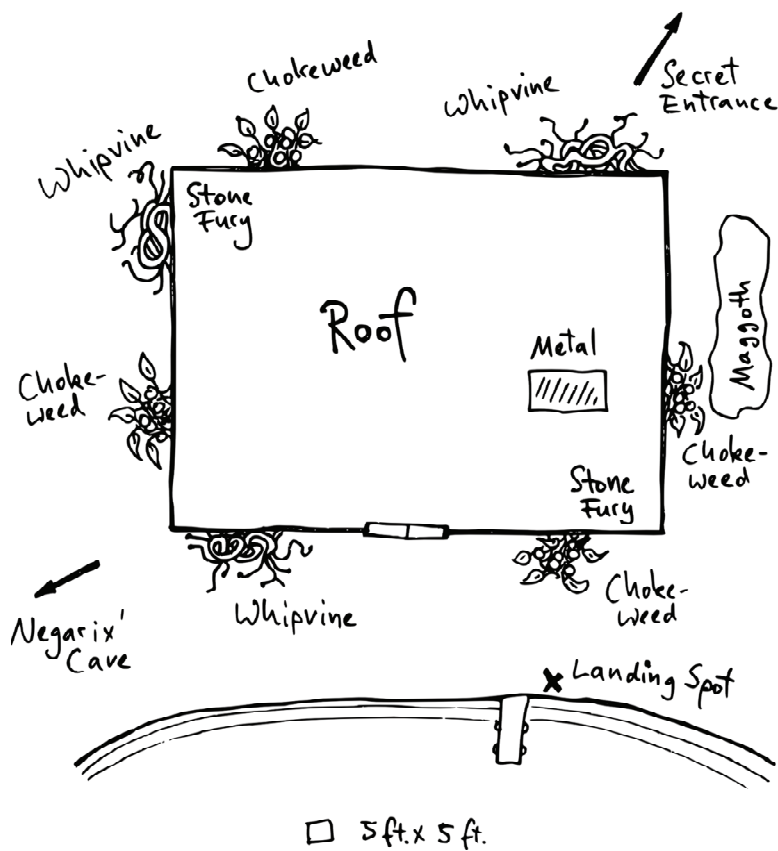 Chokeweed
Whipvine
Secret
Entrance
Whipvine
Stone
Fury
Roof
Metal
Maggoth
Choke-
weed
Choke-
weed
Stone
Fury
Whipvine
Choke-
weed
Negarix'
Cave
Landing Spot
5 ft. x 5 ft.